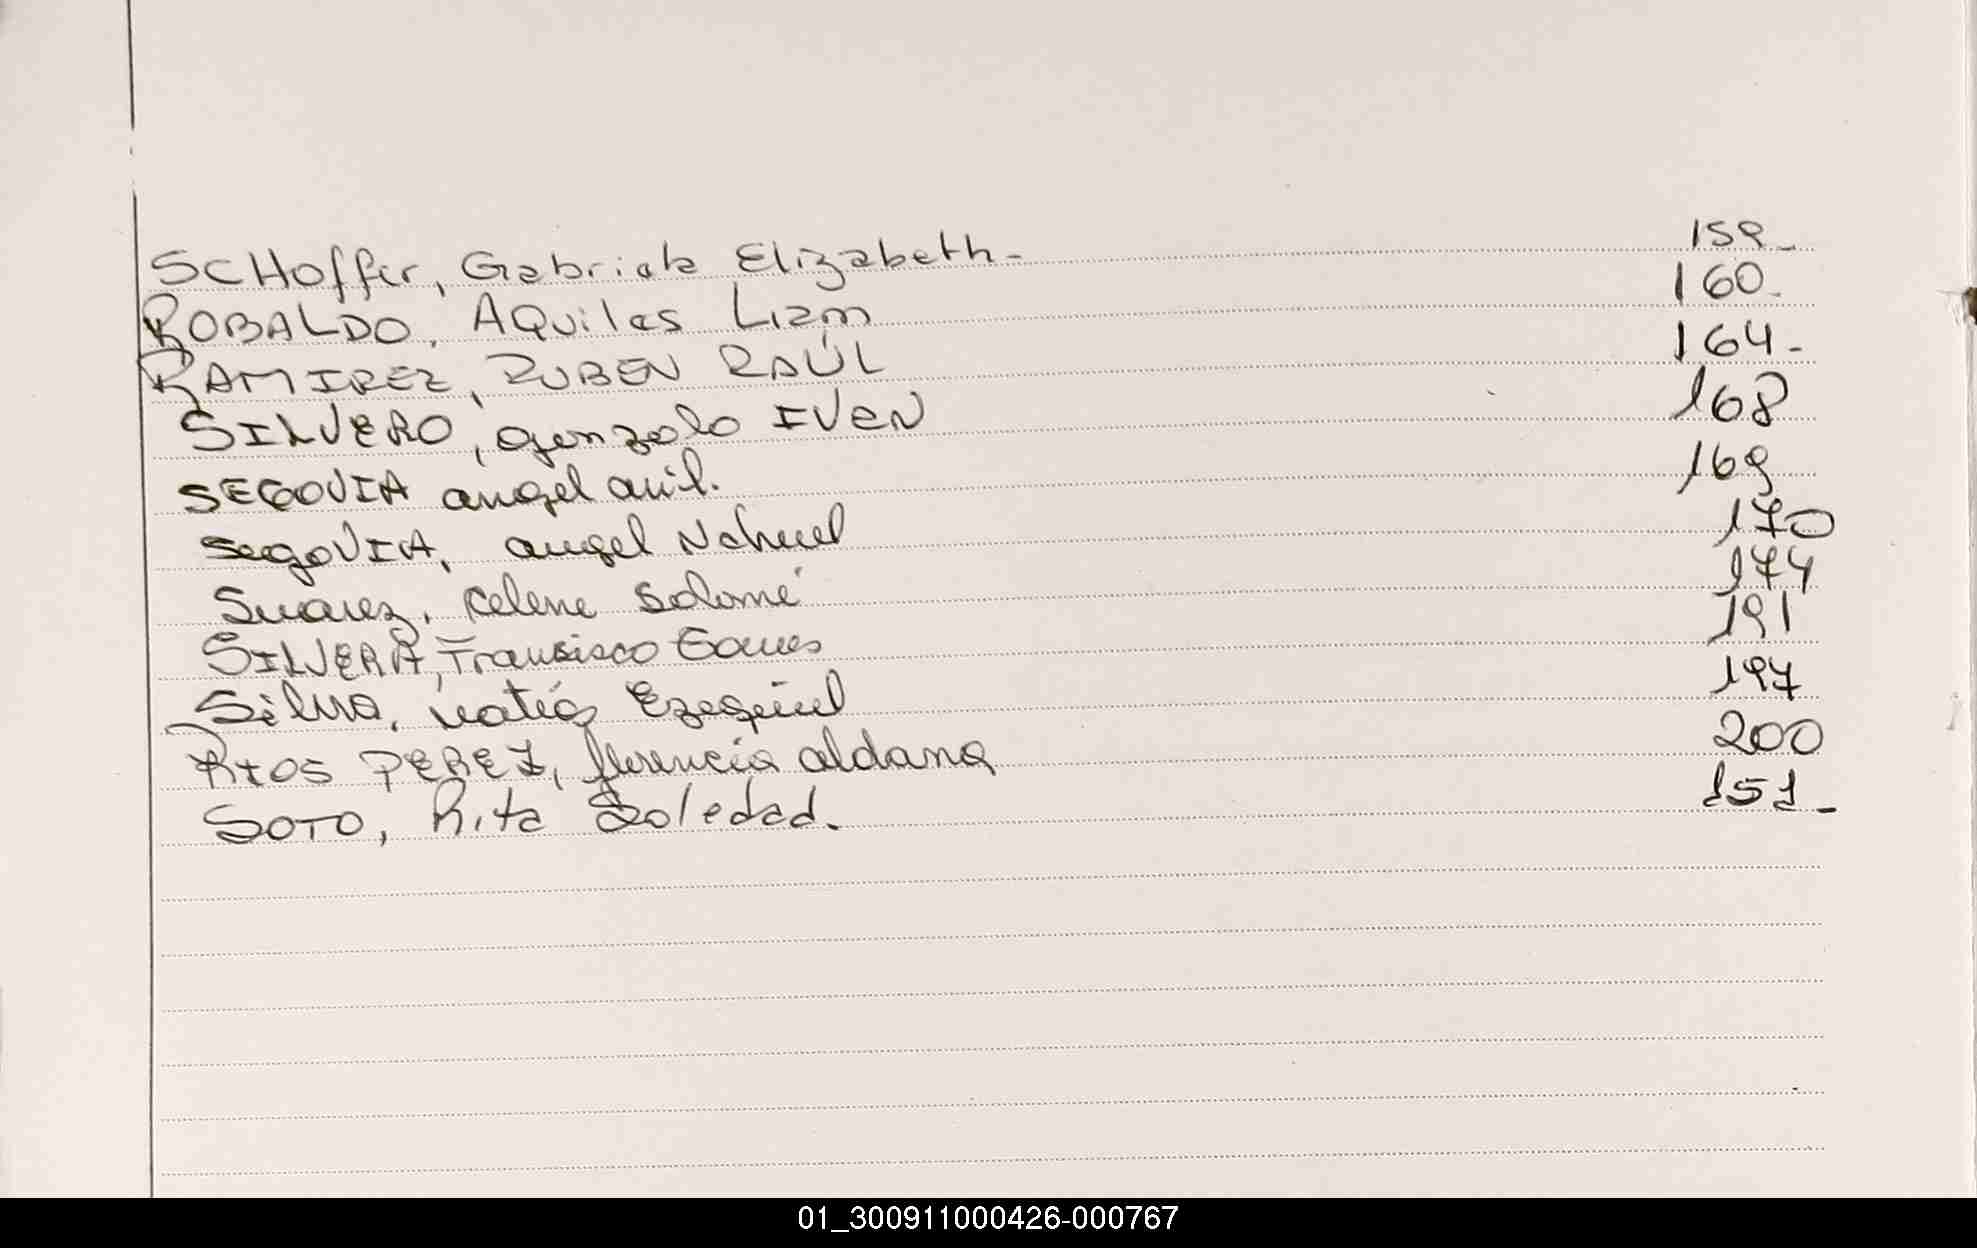 SCHoffer, Gabriela Elizabeth. 159
ROBALDO, AQuiles Liam 160
RAMIREZ, RUBEN RAÚL 164
SILVERO, gonzalo IVEN 168
SEGOVIA angel 169
segoVIA, angel Nahuel 170
Suarez, Celene Salomé 174
SILVERA, Francisco 191
Silva, Matías Ezequiel 197
RIOS PEREZ, florencia aldana 200
SOTO, Rita Soledad. 151
01_300911000426-000767